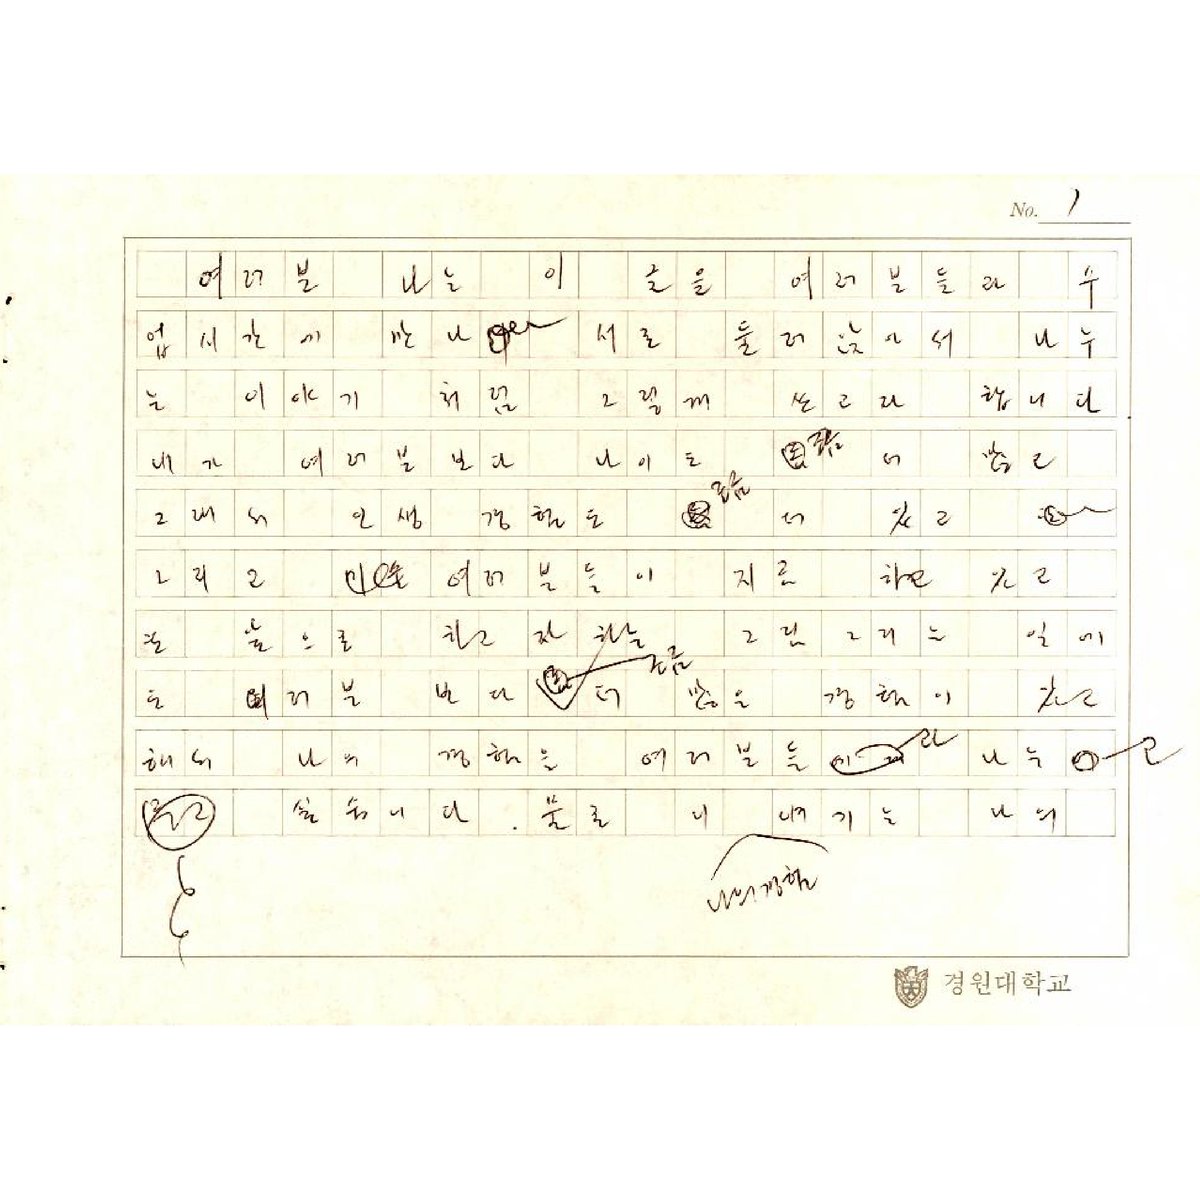 No. 1
여러분 나는 이 글을 여러분들과 수
업시간에 만나 서로 둘러 앉아서 나누
는 이야기 처럼 그렇게 쓰고자 합니다
내가 여러분 보다 나이도 조금 더 많고
그래서 인생 경험도 조금 더 있고
그리고 여러분들이 지금 하고 있고
또 앞으로 하고자 하는 그림 그리는 일에
도 여러분 보다 조금 더 많은 경험이 있고
해서 나의 경험을 여러분들과 나누고
싶습니다. 물론 이 얘기는 나의
나의 경험
경원대학교